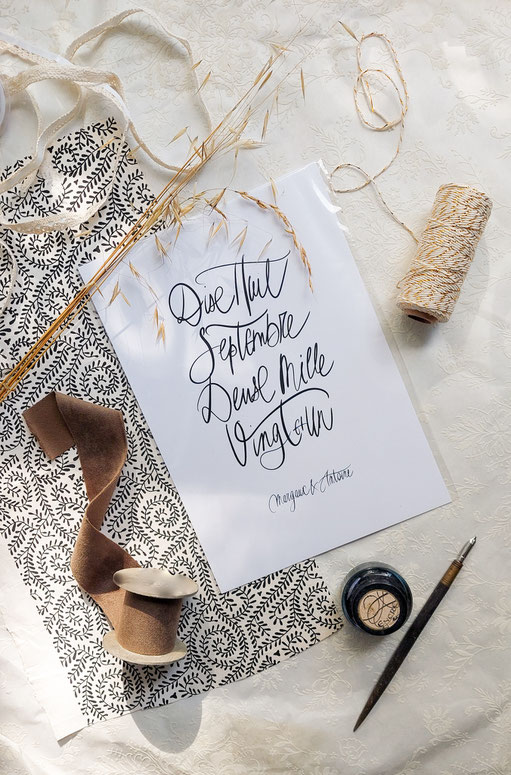 Dix Huit
Septembre
Deux Mille
Vingt et Un
Margaux & Antoine